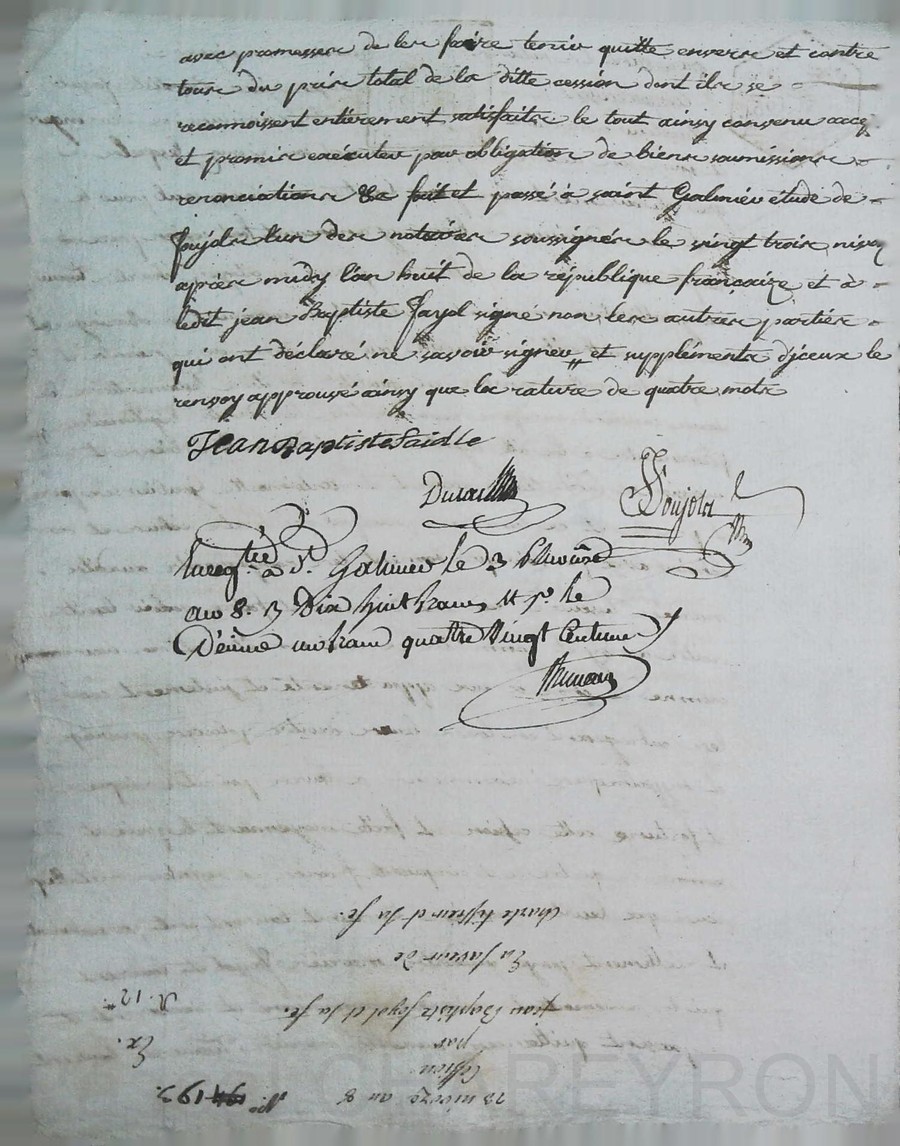 avec promesses de les faire tenir quitte envers et contre
tous du prix total de la ditte cession dont ils se
reconnoissent entièrement satisfaits le tout ainsy convenu accep
et promis exécuter par obligation de biens soumissions
renonciations &c fait et passé à saint Galmier étude de
l'un des notaires soussignés le vingt trois nivo
après midy l'an huit de la république française et a
ledit jean Baptiste Jayol signé non les autres parties
qui ont déclaré ne savoir signer et supplément d'jceux le
renvoy approuvé ainsy que la rature de quatre mots
Jean Baptiste
Enregtré à St. Galmier le 3 Pluviôse
an 8. R Dix huit francs
Décime un franc quatre Vingt Centimes
23 nivoze an 8 No. 193
Cession
par Ex.
jean Baptiste Jayol et sa fe. R. 12
En faveur de
Charle et sa fe.
CHAREYRON